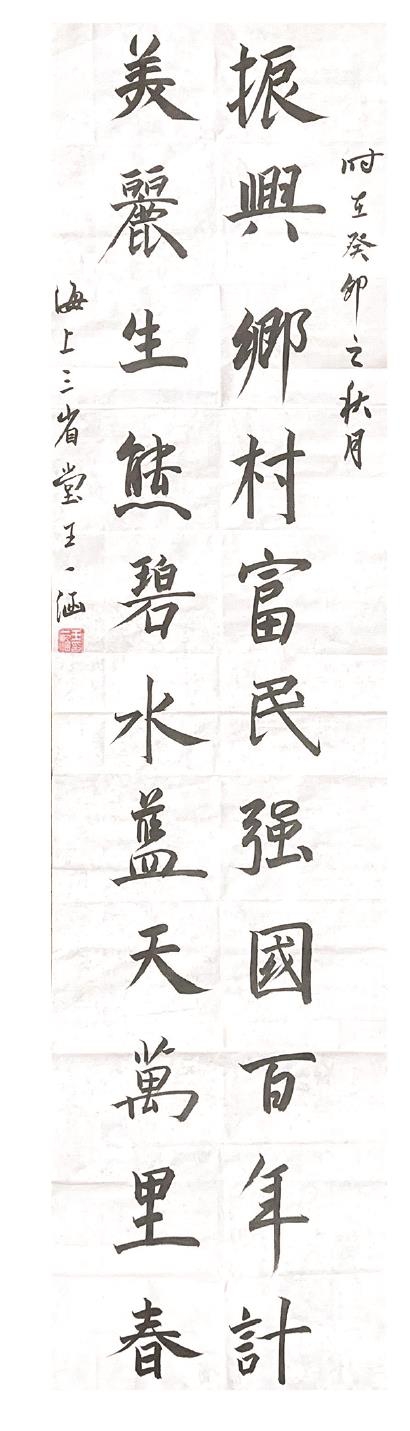 時在癸卯之秋月
振興鄉村富民强國百年計
美麗生態碧水藍天萬里春
海上三省堂王一涵